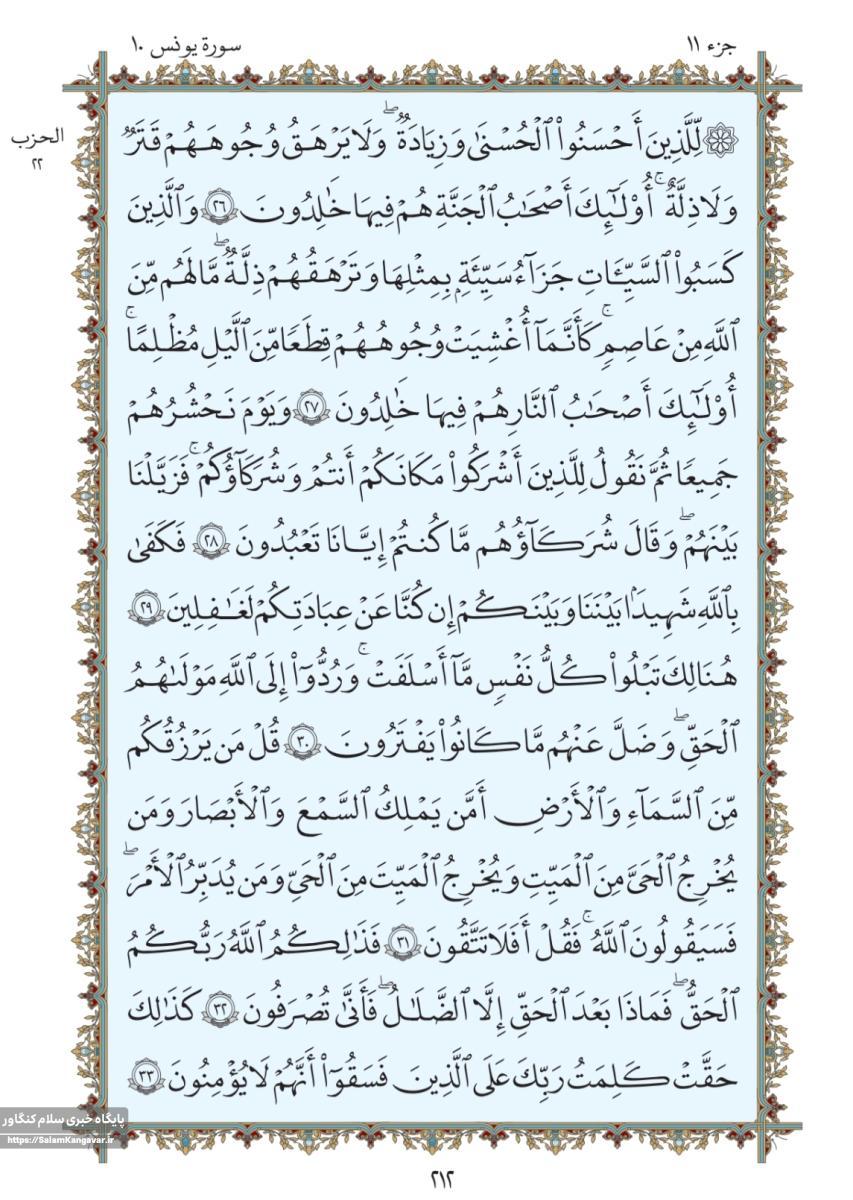 جزء ١١
سورة يونس ١٠
الحزب
٢٢
۞ لِّلَّذِينَ أَحْسَنُوا۟ ٱلْحُسْنَىٰ وَزِيَادَةٌۭ ۖ وَلَا يَرْهَقُ وُجُوهَهُمْ قَتَرٌۭ
وَلَا ذِلَّةٌ ۚ أُو۟لَـٰٓئِكَ أَصْحَـٰبُ ٱلْجَنَّةِ هُمْ فِيهَا خَـٰلِدُونَ ٢٦ وَٱلَّذِينَ
كَسَبُوا۟ ٱلسَّيِّـَٔاتِ جَزَآءُ سَيِّئَةٍۭ بِمِثْلِهَا وَتَرْهَقُهُمْ ذِلَّةٌۭ ۖ مَّا لَهُم مِّنَ
ٱللَّهِ مِنْ عَاصِمٍۢ ۖ كَأَنَّمَآ أُغْشِيَتْ وُجُوهُهُمْ قِطَعًۭا مِّنَ ٱلَّيْلِ مُظْلِمًا ۚ
أُو۟لَـٰٓئِكَ أَصْحَـٰبُ ٱلنَّارِ هُمْ فِيهَا خَـٰلِدُونَ ٢٧ وَيَوْمَ نَحْشُرُهُمْ
جَمِيعًۭا ثُمَّ نَقُولُ لِلَّذِينَ أَشْرَكُوا۟ مَكَانَكُمْ أَنتُمْ وَشُرَكَآؤُكُمْ ۚ فَزَيَّلْنَا
بَيْنَهُمْ ۖ وَقَالَ شُرَكَآؤُهُم مَّا كُنتُمْ إِيَّانَا تَعْبُدُونَ ٢٨ فَكَفَىٰ
بِٱللَّهِ شَهِيدًۢا بَيْنَنَا وَبَيْنَكُمْ إِن كُنَّا عَنْ عِبَادَتِكُمْ لَغَـٰفِلِينَ ٢٩
هُنَالِكَ تَبْلُوا۟ كُلُّ نَفْسٍۢ مَّآ أَسْلَفَتْ ۚ وَرُدُّوٓا۟ إِلَى ٱللَّهِ مَوْلَىٰهُمُ
ٱلْحَقِّ ۖ وَضَلَّ عَنْهُم مَّا كَانُوا۟ يَفْتَرُونَ ٣٠ قُلْ مَن يَرْزُقُكُم
مِّنَ ٱلسَّمَآءِ وَٱلْأَرْضِ أَمَّن يَمْلِكُ ٱلسَّمْعَ وَٱلْأَبْصَـٰرَ وَمَن
يُخْرِجُ ٱلْحَىَّ مِنَ ٱلْمَيِّتِ وَيُخْرِجُ ٱلْمَيِّتَ مِنَ ٱلْحَىِّ وَمَن يُدَبِّرُ ٱلْأَمْرَ ۚ
فَسَيَقُولُونَ ٱللَّهُ ۚ فَقُلْ أَفَلَا تَتَّقُونَ ٣١ فَذَٰلِكُمُ ٱللَّهُ رَبُّكُمُ
ٱلْحَقُّ ۖ فَمَاذَا بَعْدَ ٱلْحَقِّ إِلَّا ٱلضَّلَـٰلُ ۖ فَأَنَّىٰ تُصْرَفُونَ ٣٢ كَذَٰلِكَ
حَقَّتْ كَلِمَتُ رَبِّكَ عَلَى ٱلَّذِينَ فَسَقُوٓا۟ أَنَّهُمْ لَا يُؤْمِنُونَ ٣٣
پایگاه خبری سلام کنگاور
https://SalamKangavar.ir
٢١٢